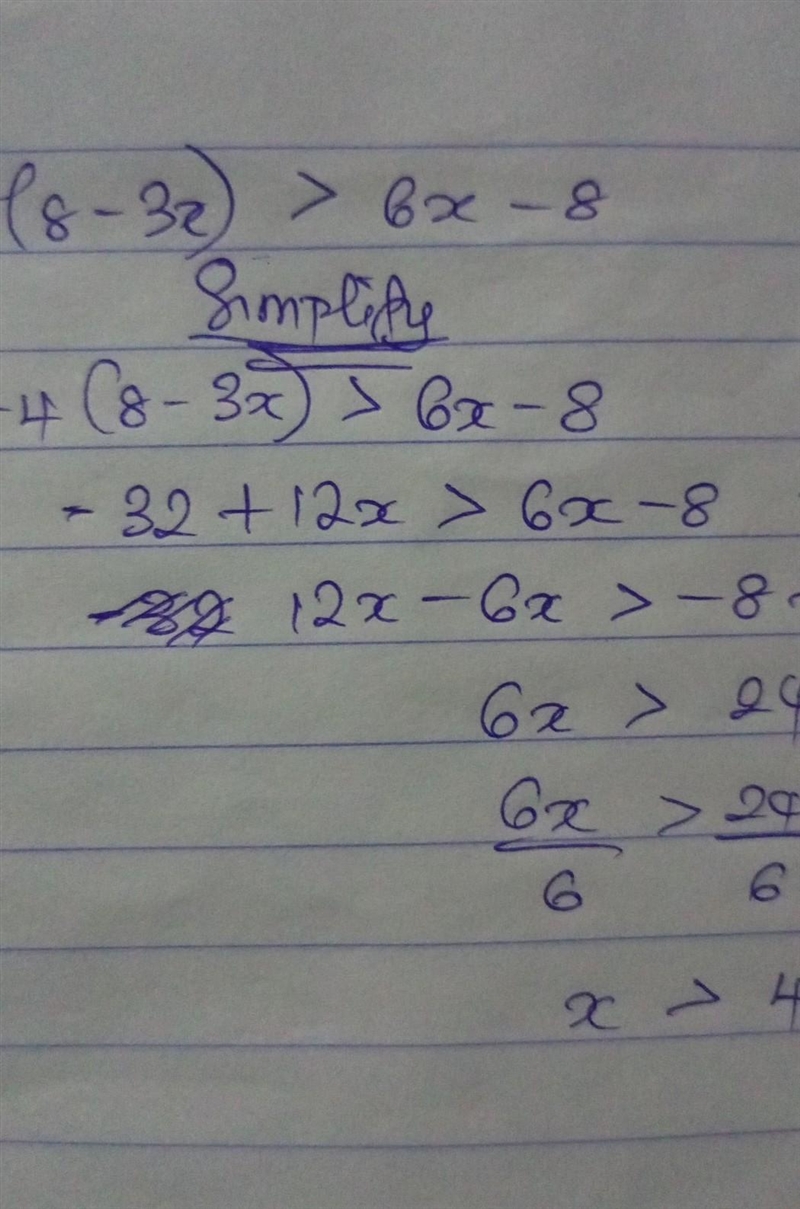 (8 - 3x) > 6x - 8
Simplify
-4 (8 - 3x) > 6x - 8
- 32 + 12x > 6x - 8
12x - 6x > - 8
6x > 24
6x/6 > 24/6
x > 4